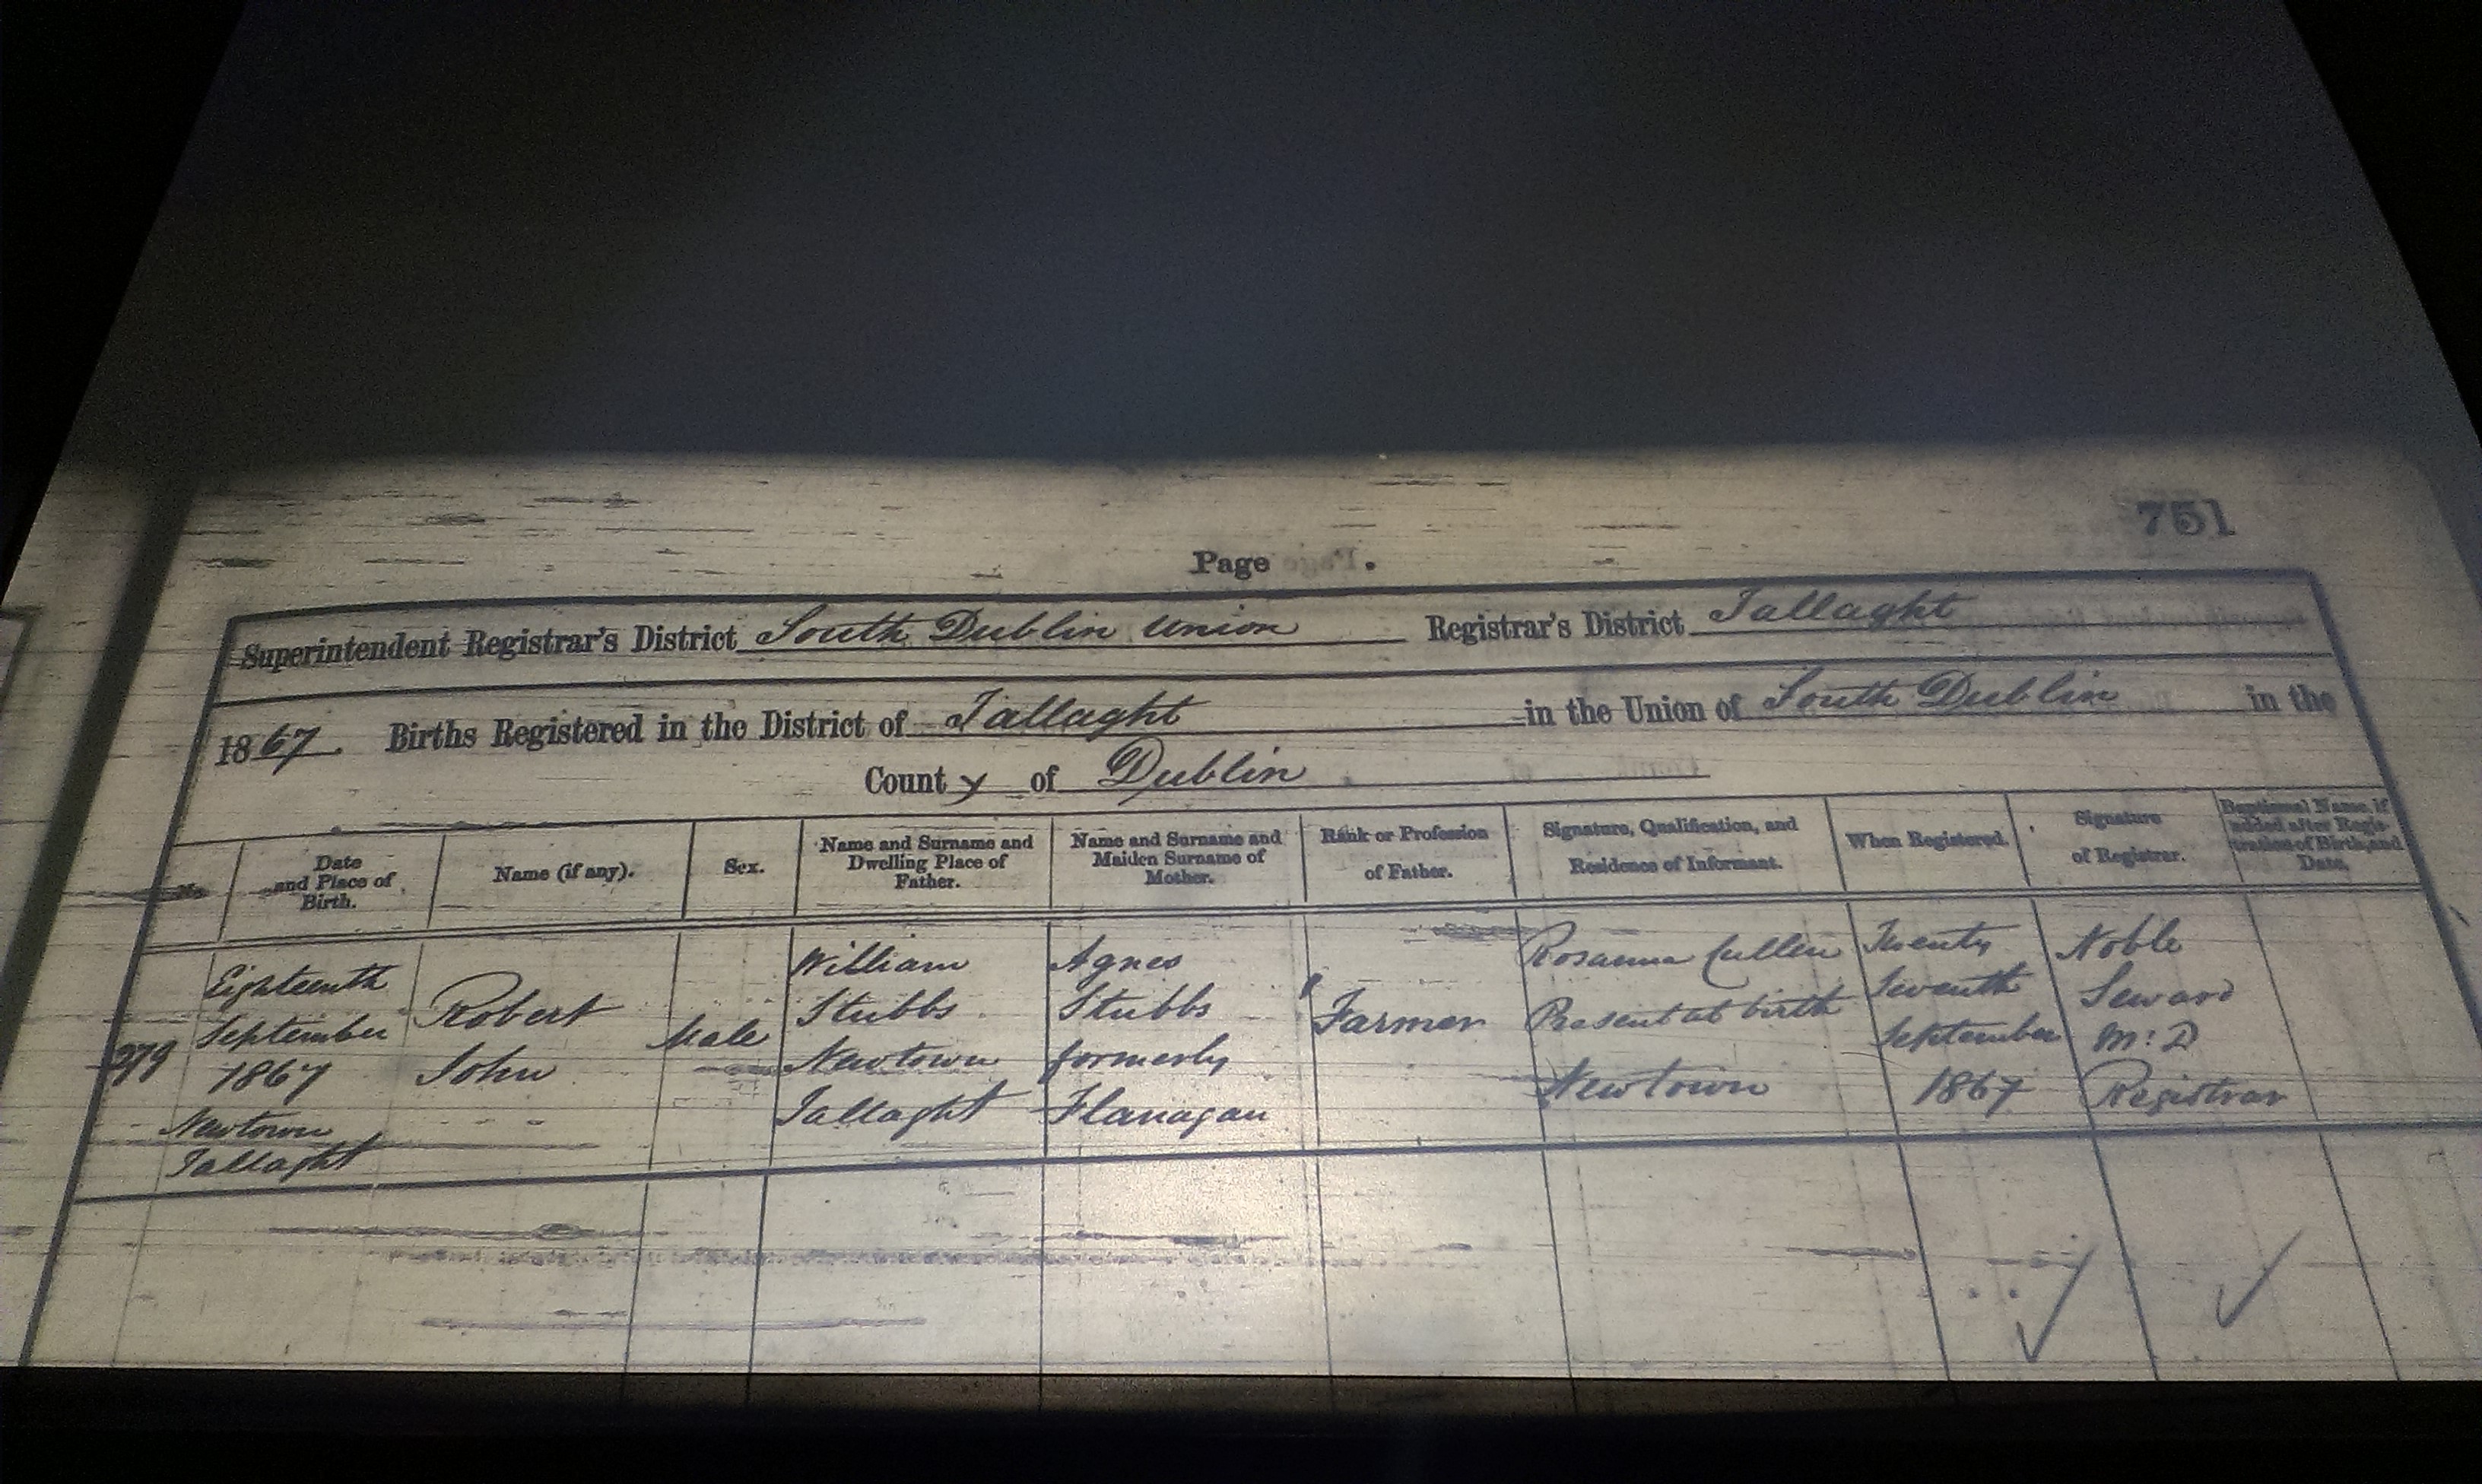 751
Page
Superintendent Registrar's District South Dublin Union Registrar's District Tallaght
1867. Births Registered in the District of Tallaght in the Union of South Dublin in the
County of Dublin
No.
Date
and Place of
Birth.
Name (if any).
Sex.
Name and Surname and
Dwelling Place of
Father.
Name and Surname and
Maiden Surname of
Mother.
Rank or Profession
of Father.
Signature, Qualification, and
Residence of Informant.
When Registered.
Signature
of Registrar.
Baptismal Name, if
added after Regis-
tration of Birth, and
Date.
279
Eighteenth
September
1867
Newtown
Tallaght
Robert
John
Male
William
Stubbs
Newtown
Tallaght
Agnes
Stubbs
formerly
Flanagan
Farmer
Rosanna Cullen
Present at birth
Newtown
Twenty
Seventh
September
1867
Noble
Seward
M: D
Registrar